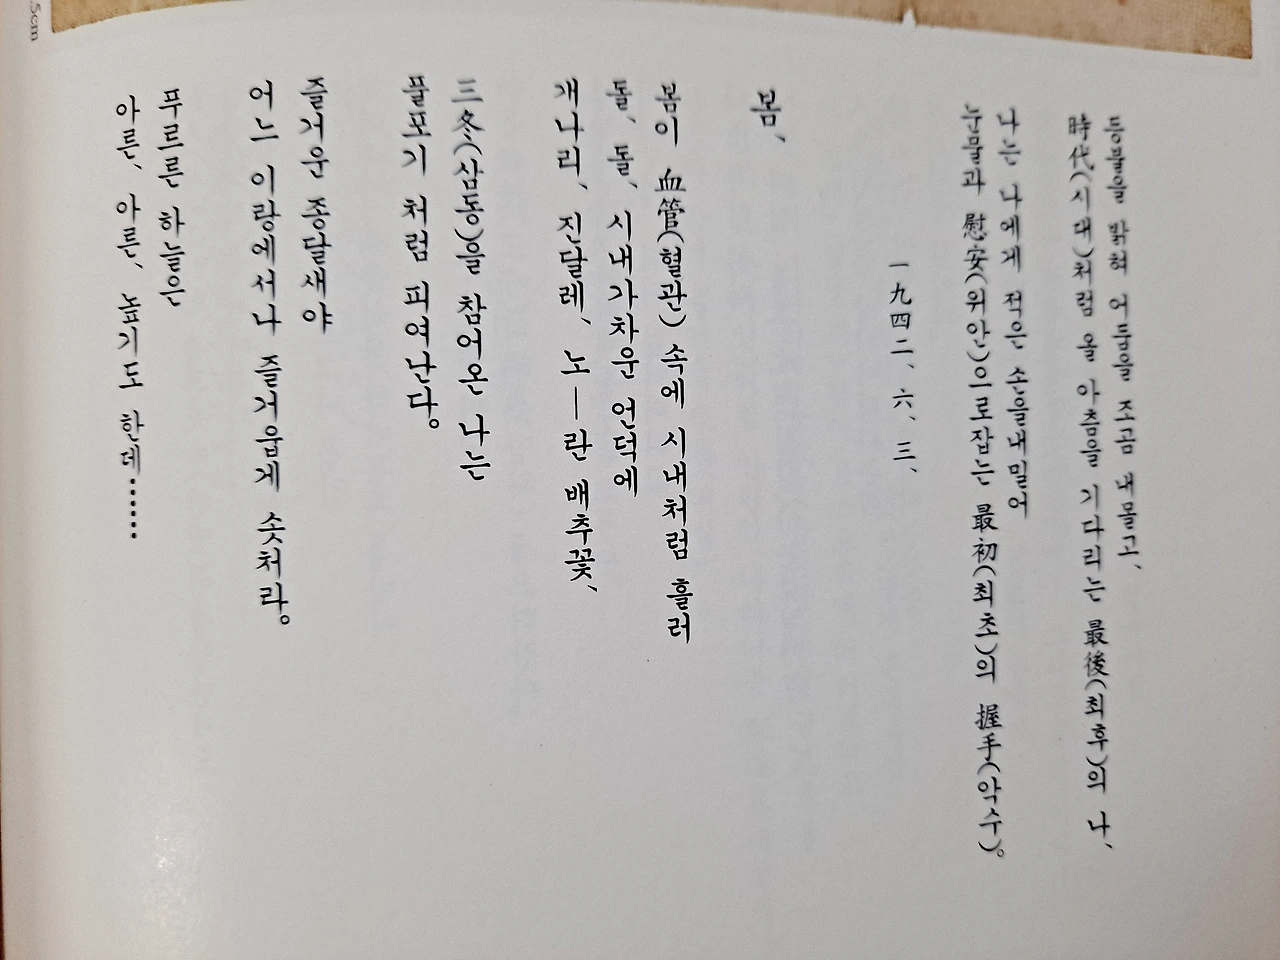 등불을 밝혀 어둠을 조곰 내몰고、
時代(시대)처럼 올 아츰을 기다리는 最後(최후)의 나、
나는 나에게 적은 손을내밀어
눈물과 慰安(위안)으로잡는 最初(최초)의 握手(악수)。
一九四二、六、三、
봄、
봄이 血管(혈관) 속에 시내처럼 흘러
돌、돌、시내가차운 언덕에
개나리、진달레、노—란 배추꽃、
三冬(삼동)을 참어온 나는
풀포기 처럼 피여난다。
즐거운 종달새야
어느 이랑에서나 즐거웁게 솟처라。
푸르른 하늘은
아른、아른、높기도 한데……
5cm